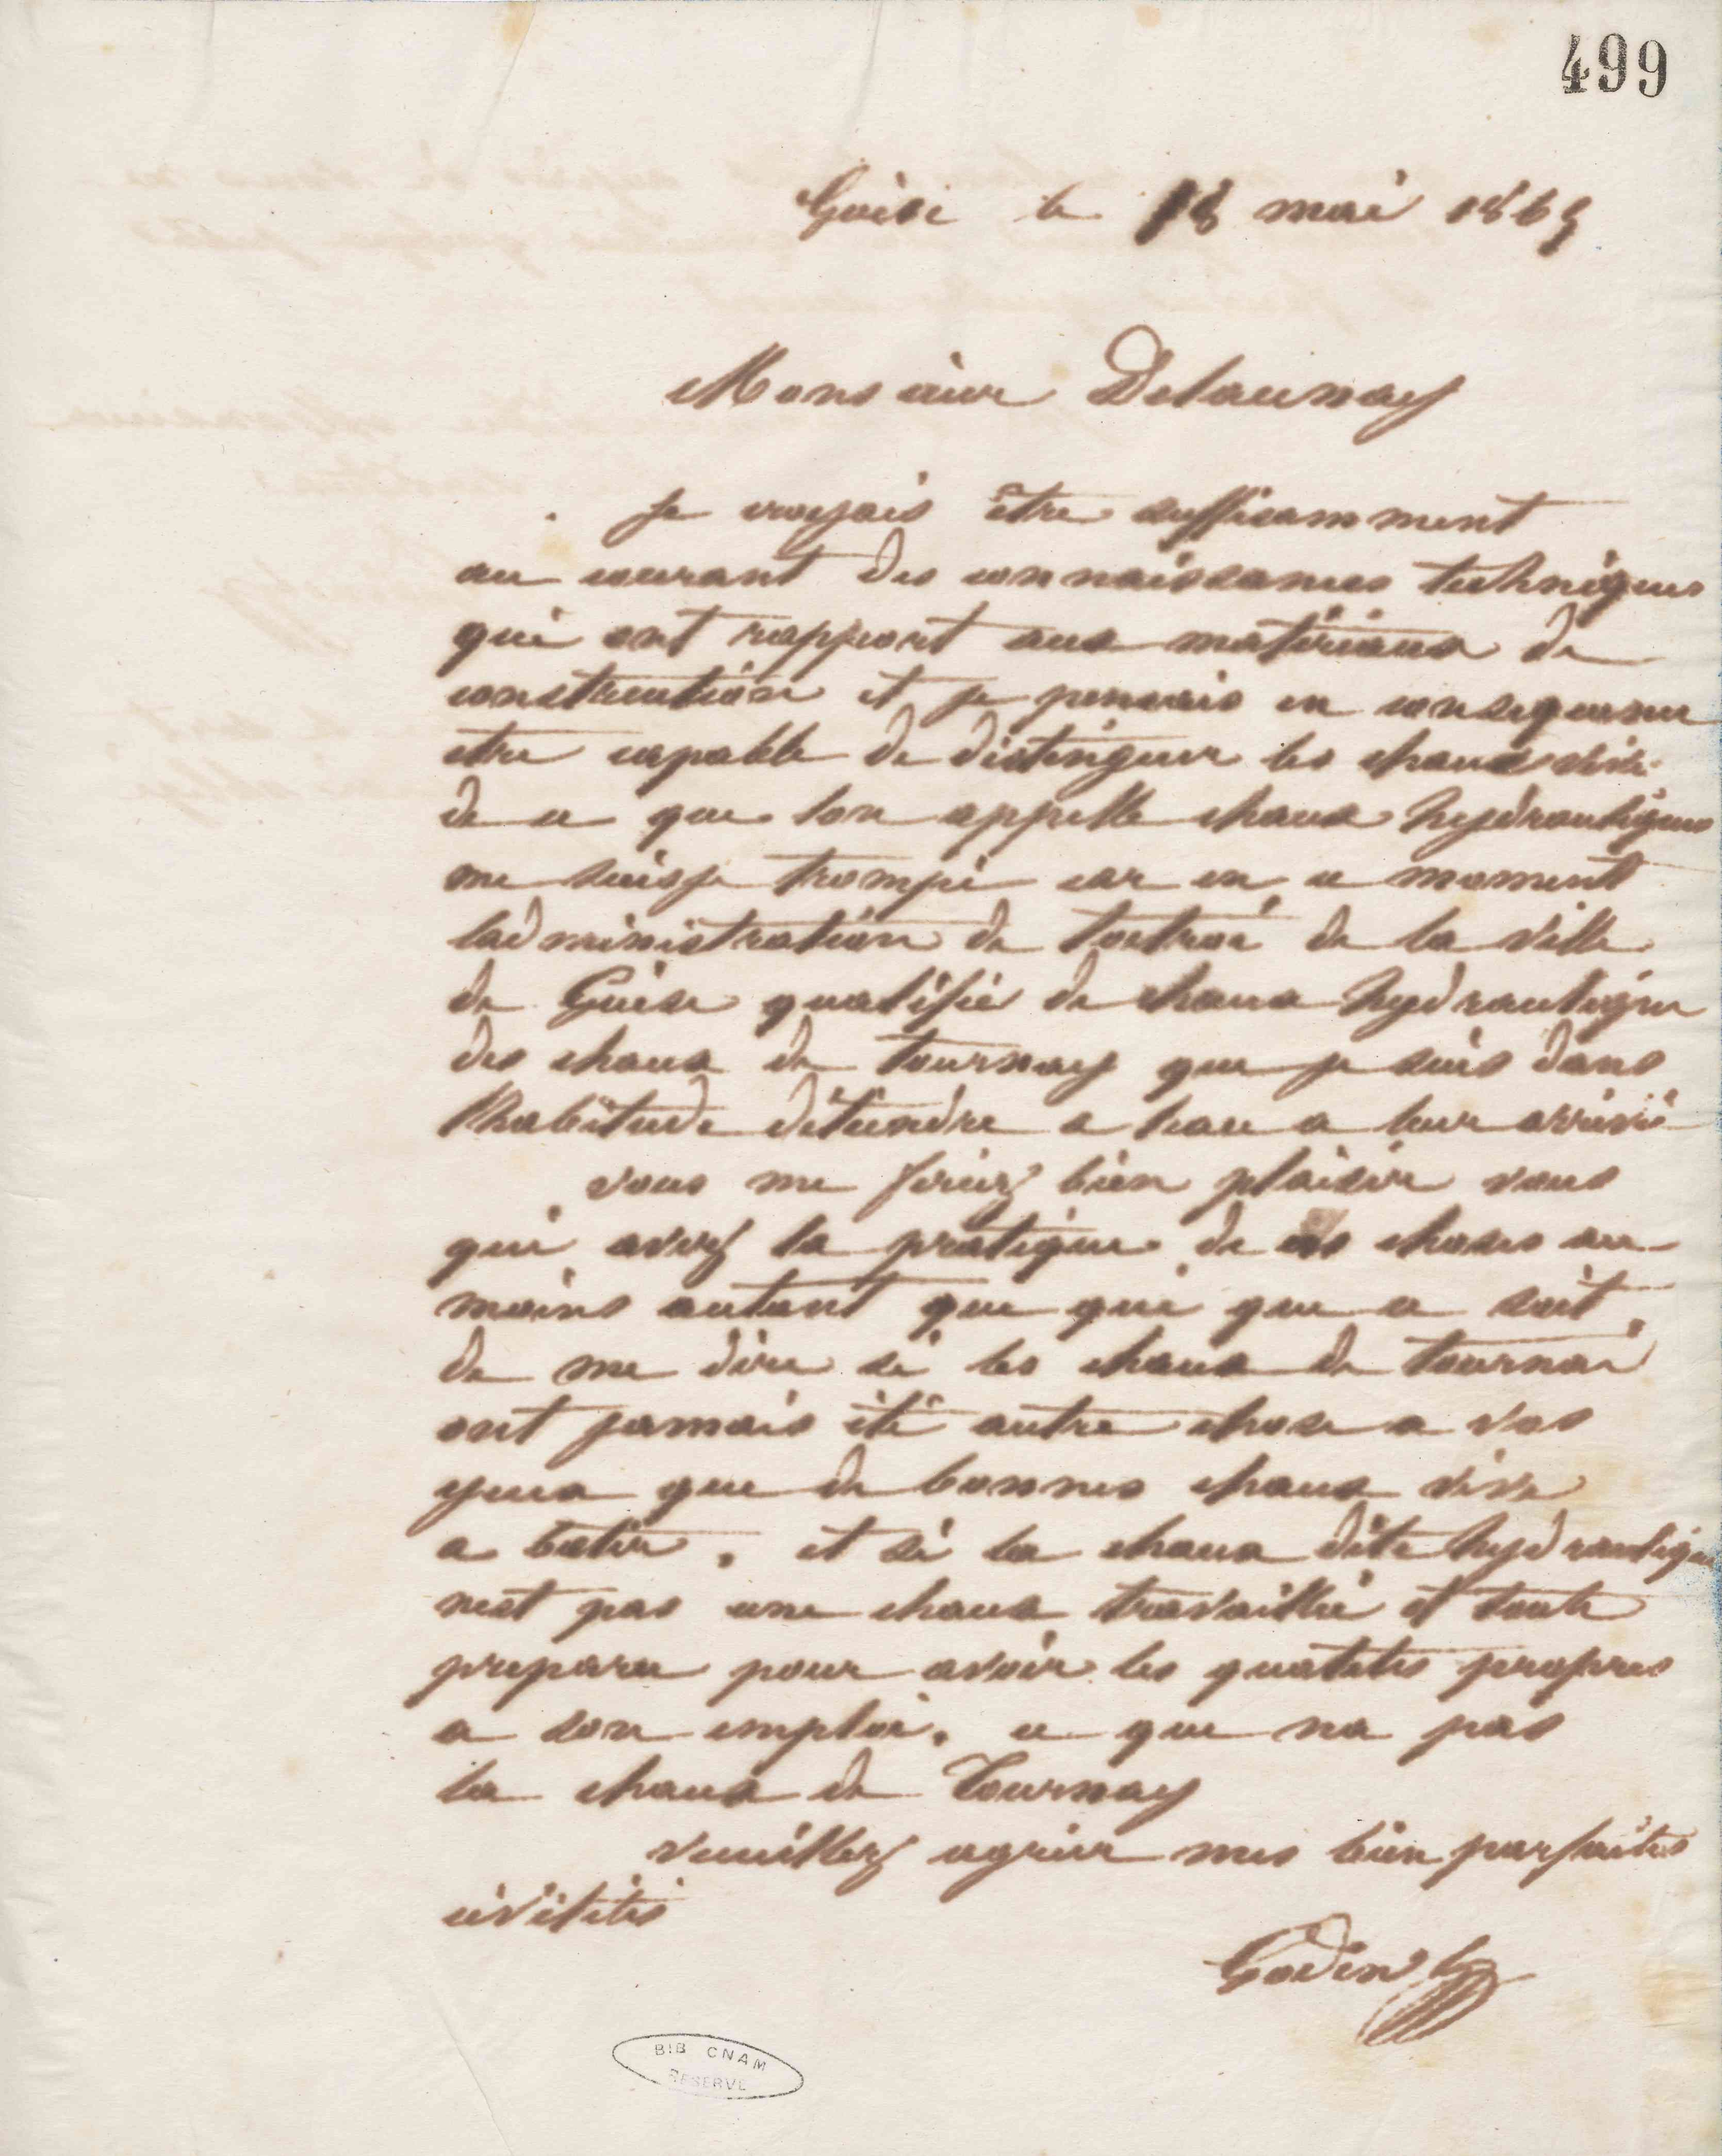 499
Guise le 18 mai 1863
Monsieur Delaunay
Je croyais être suffisamment
au courant des connaissances techniques
qui ont rapport aux matériaux de
construction et je pensais en consequence
etre capable de distinguer les chaux vive
de ce que lon appelle chaux hydrauliques
me suisje trompé car en ce moment
ladministration de loctroi de la ville
de Guise qualifie de chaux hydraulique
des chaux de tournay que je suis dans
lhabitude déteindre a leau a leur arrivée
vous me feriez bien plaisir vous
qui avez la pratique de ces choses au
moins autant que qui que ce soit,
de me dire si les chaux de tournai
ont jamais été autre chose a vos
yeux que de bonnes chaux vive
a batir, et si la chaux dite hydraulique
nest pas une chaux travaillée et toute
preparee pour avoir les qualités propres
a son emploi, ce que na pas
la chaux de Tournay
veuillez agréer mes bien parfaites
civilités
Godin
BIB CNAM
RESERVE